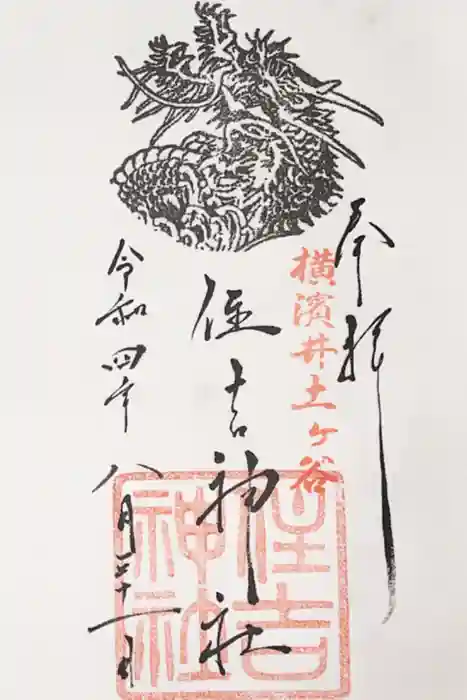 奉拝
横濱井土ヶ谷
住吉神社
住吉
神社
令和四年
八月三十一日